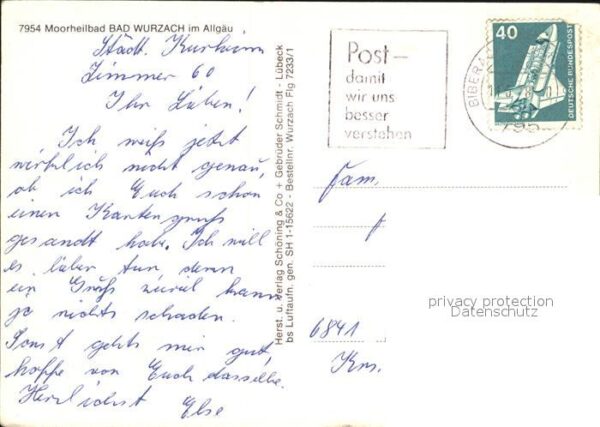 7954 Moorheilbad BAD WURZACH im Allgäu
Städt. Kurheim
Zimmer 60
Ihr Lieben!
Ich weiß jetzt
wirklich nicht genau,
ob ich Euch schon
einen Kartengruß
gesandt habe. Ich will
es lieber tun denn
ein Gruß zuviel kann
ja nichts schaden.
Sonst gehts mir gut,
hoffe von Euch dasselbe.
Herzlichst Else
Herst. u. Verlag Schöning & Co + Gebrüder Schmidt - Lübeck
bs Luftaufn. gen. SH 1-15622 - Bestellnr. Wurzach Flg 7233/1
Post –
damit
wir uns
besser
verstehen
BIBERA
795
40
DEUTSCHE BUNDESPOST
Fam.
privacy protection
Datenschutz
6841
Krs.